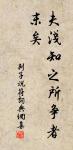 夫浅知之所争者
末矣
列子说符词典網集